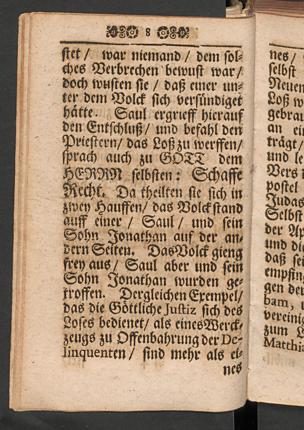 8
stet / war niemand / dem sol-
ches Verbrechen bewust war /
doch wusten sie / daß einer un-
ter dem Volck sich versündiget
hätte. Saul ergrieff hierauf
den Entschluß / und befahl den
Priestern / das Loß zu werffen /
sprach auch zu GOTT dem
HERRN selbsten: Schaffe
Recht. Da theilten sie sich in
zwey Hauffen / das Volck stand
auff einer / Saul / und sein
Sohn Jonathan auf der an-
dern Seiten. Das Volck gieng
frey aus / Saul aber und sein
Sohn Jonathan wurden ge-
troffen. Dergleichen Exempel /
das die Göttliche Justiz sich des
Loses bedienet / als eines Werck-
zeugs zu Offenbahrung der De-
linquenten / sind mehr als ei-
nes
nes /
selbst
Neuen
Loß
gebrau
an
trägt /
und le
Vers
postel
Judas
Selbst
der Ap
und di
daß sei
empfin
gen der
bam,
vereinig
zum L
Matthia